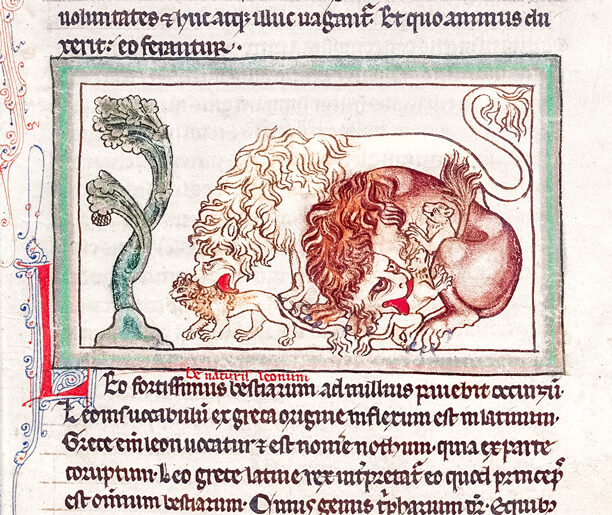 uoluntates & huc atq; illuc uagant᷑. Et quo animus du
xerit: eo ferantur.
De natura leonum
Leo fortissimus bestiarum ad nullius pauebit occursū.
Leonis uocabulū ex greca origine inflexum est in latinum.
Grece eni leon uocatur & est nomē nothum. quia ex parte
coruptum. Leo grece latine rex int̄pretat᷑ eo quod princeps
est omnium bestiarum. Cuius genus t̄pharium dr̄. E quibꝫ